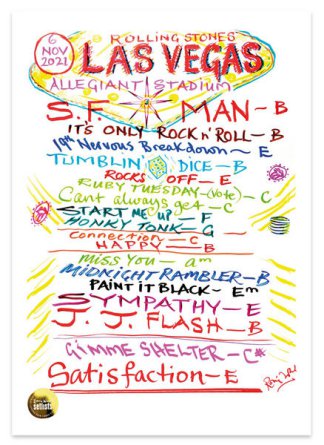 6
NOV
2021
ROLLING STONES'
LAS VEGAS
ALLEGIANT STADIUM
S.F MAN - B
IT'S ONLY ROCK n' ROLL - B
19th Nervous Breakdown - E
TUMBLIN' DICE - B
ROCKS OFF - E
RUBY TUESDAY - (Vote) - C
Cant always get - C
START ME up - F
HONKY TONK - G
Connection - C
HAPPY - B
miss You - am
MIDNIGHT RAMBLER - B
PAINT IT BLACK - Em
SYMPATHY - E
J. J. FLASH - B
GIMME SHELTER - C#
Satisfaction - E
setlists